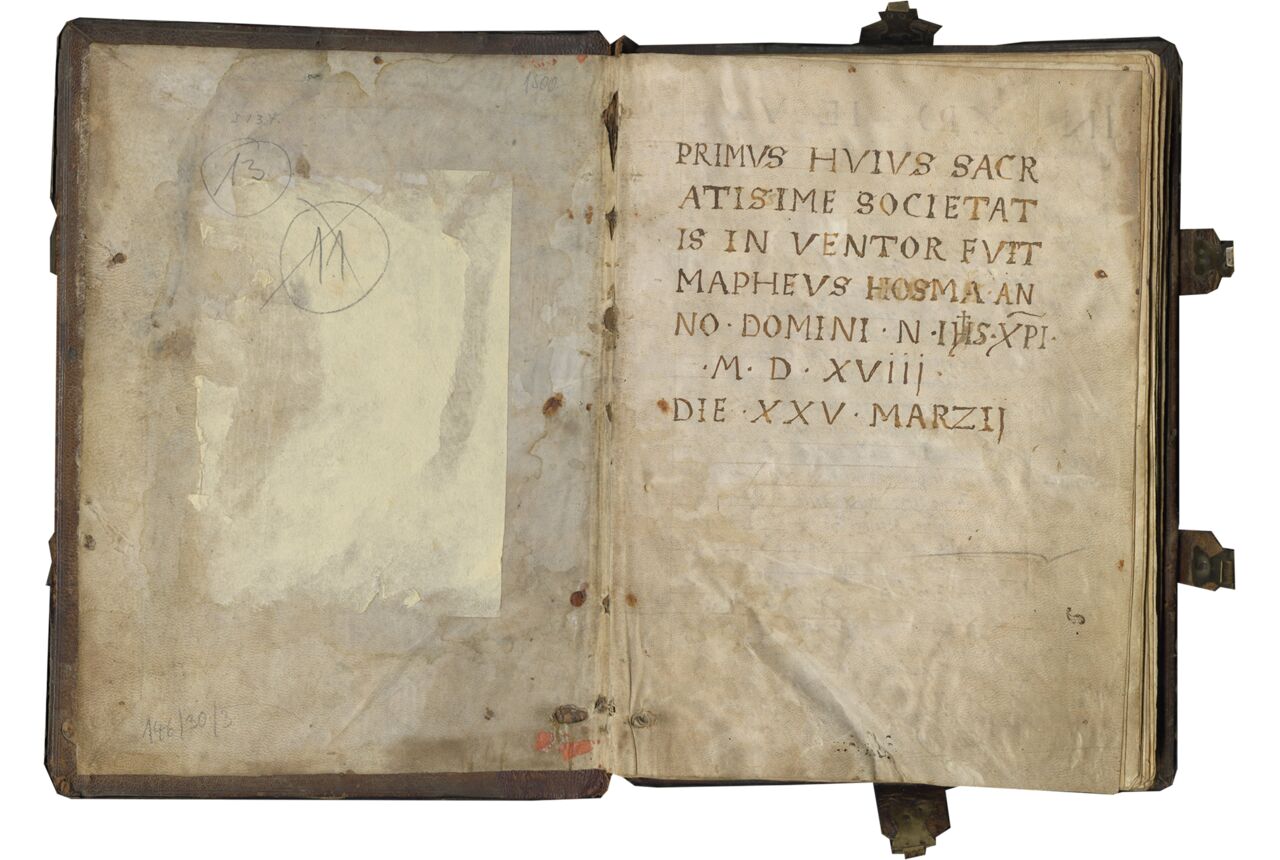 1500
S 134.
13
11
146/30/3
PRIMVS HVIVS SACR
ATISIME SOCIETAT
IS IN VENTOR FVIT
MAPHEVS HOSMA·AN
NO·DOMINI·N·IHS·XPI·
·M·D·XViiij·
DIE·XXV·MARZIJ